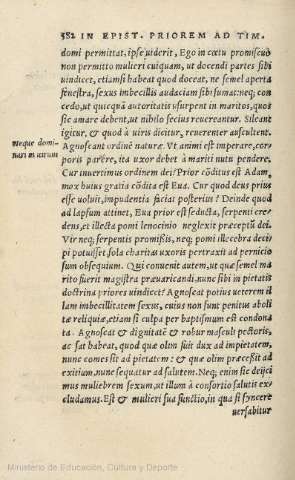 382 IN EPIST. PRIOREM AD TIM.
domi permittat, ipse uiderit, Ego in cœtu promiscuo
non permitto mulieri cuiquam, ut docendi partes sibi
uindicet, etiamsi habeat quod doceat, ne semel aperta
fenestra, sexus imbecillis audaciam sibi sumat: neq; con
cedo, ut quicquã autoritatis usurpent in maritos, quos
sic amare debent, ut nihilo secius reuereantur. Silent
igitur, & quod à uiris dicitur, reuerenter auscultent.
Neque domi- Agnoscant ordinẽ naturæ. Vt animi est imperare, cor-
nari in uirum poris parêre, ita uxor debet à mariti nutu pendere.
Cur inuertimus ordinem dei? Prior cõditus est Adam,
mox huius gratia cõdita est Eua. Cur quod deus prius
esse uoluit, impudentia faciat posterius? Deinde quod
ad lapsum attinet, Eua prior est seducta, serpenti cre-
dens, et illecta pomi lenocinio neglexit præceptũ dei.
Vir neq; serpentis promissis, neq; pomi illecebra deci-
pi potuisset, sola charitas uxoris pertraxit ad pernicio
sum obsequium. Qui conuenit autem, ut quæ semel ma
rito fuerit magistra præuaricandi, nunc sibi in pietatis
doctrina priores uindicet? Agnoscat potius ueterem il
lam imbecillitatem sexus, cuius non sunt penitus aboli
tæ reliquiæ, etiam si culpa per baptismum est condona
ta. Agnoscat & dignitatẽ & robur masculi pectoris,
ac sat habeat, quod quæ olim fuit dux ad impietatem,
nunc comes sit ad pietatem: & quæ olim præcessit ad
exitium, nunc sequatur ad salutem. Neq; enim sic deijci
mus muliebrem sexum, ut illum à consortio salutis ex-
cludamus. Est & mulieri sua functio, in qua si syncere
uersabitur
Ministerio de Educación, Cultura y Deporte